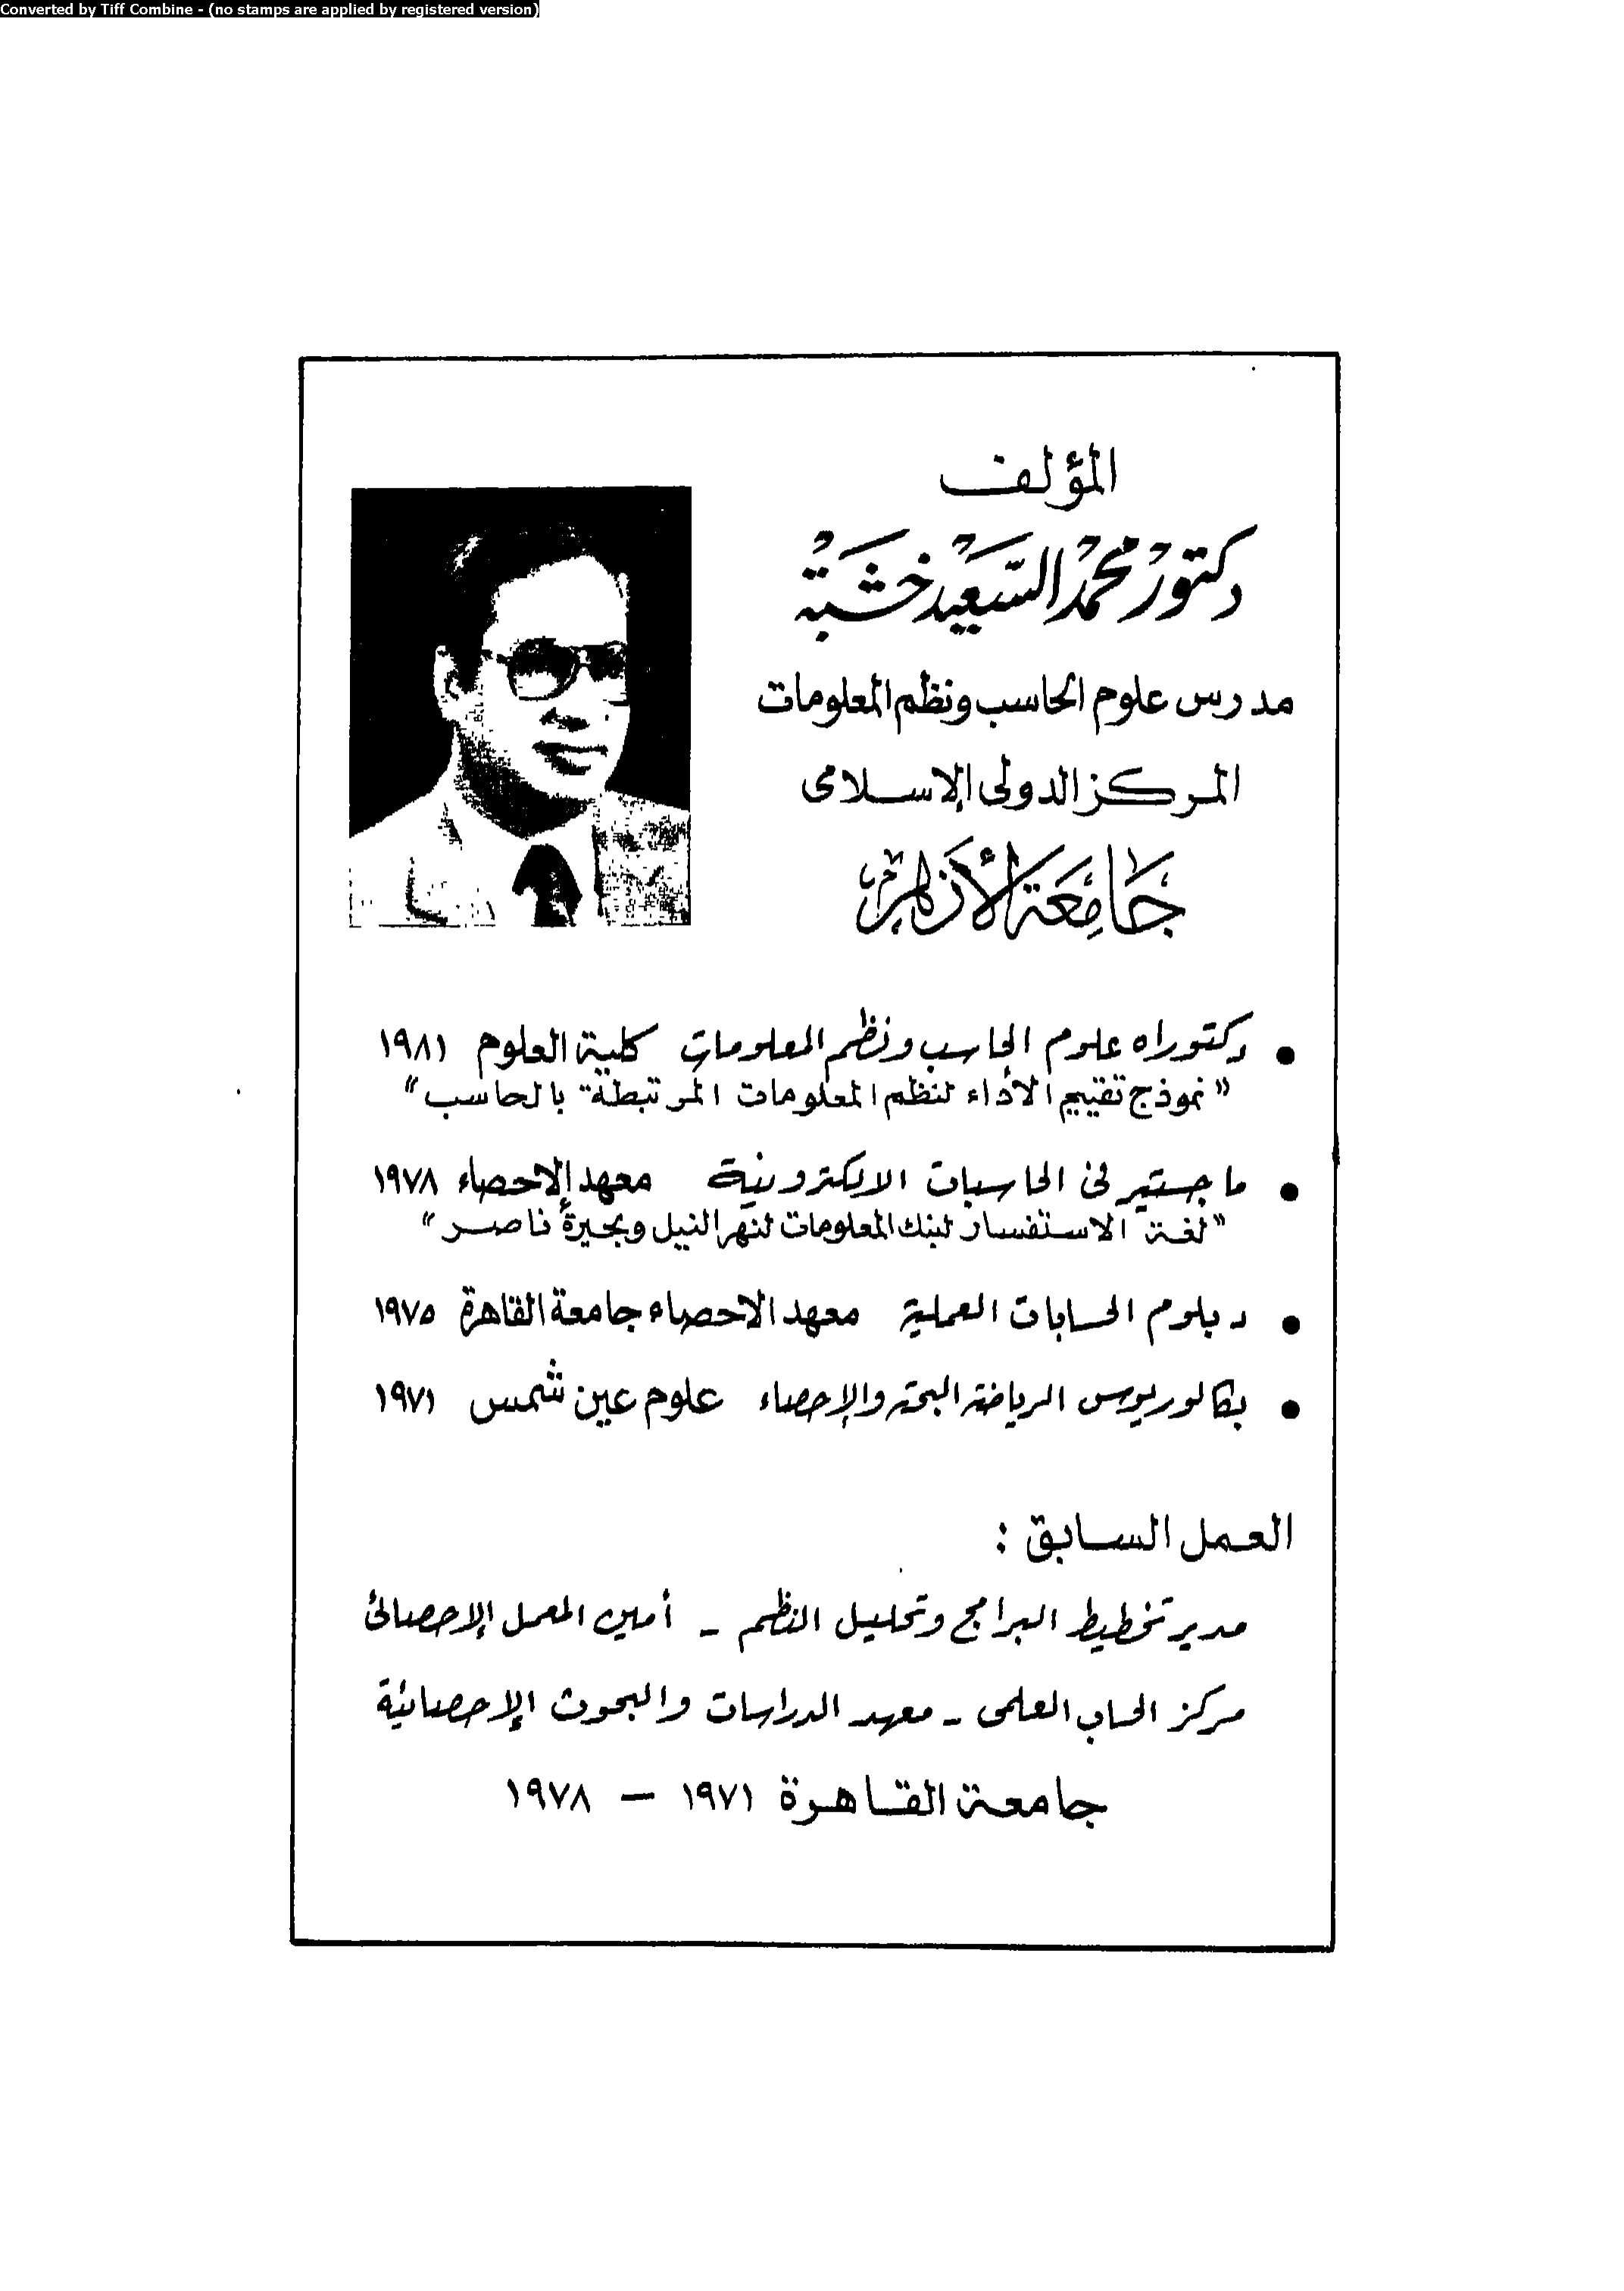 Converted by Tiff Combine - (no stamps are applied by registered version)
المؤلف
دكتور محمد السعيد خشبة
مدرس علوم الحاسب ونظم المعلومات
المركز الدولى الإسلامى
جامعة الأزهر
● دكتوراه علوم الحاسب ونظم المعلومات كلية العلوم ١٩٨١
"نموذج تقييم الأداء لنظم المعلومات المرتبطة بالحاسب"
● ماجستير فى الحاسبات الالكترونية معهد الإحصاء ١٩٧٨
"لغة الاستفسار لبنك المعلومات لنهر النيل وبحيرة ناصر"
● دبلوم الحسابات العملية معهد الاحصاء جامعة القاهرة ١٩٧٥
● بكالوريوس الرياضة البحتة والإحصاء علوم عين شمس ١٩٧١
العمل السابق :
مدير تخطيط البرامج وتحليل النظم - أمين المعمل الإحصائى
مركز الحساب العلمى - معهد الدراسات والبحوث الإحصائية
جامعة القاهرة ١٩٧١ - ١٩٧٨